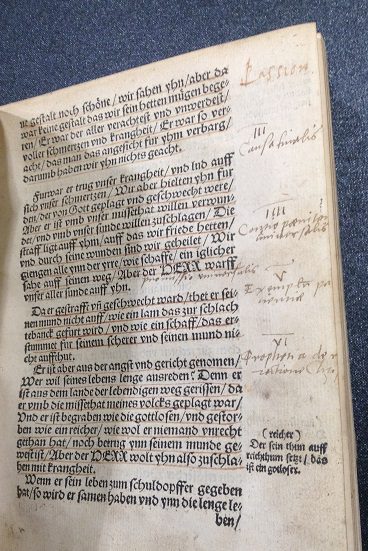 ne gestalt noch schöne / wir sahen yhn / aber da
war keine gestalt das wir sein hetten mügen bege-
ren / Er war der aller verachtest vnd vnwerdest /
voller schmertzen vnd kranckheit / Er war so ver-
acht / das man das angesicht fur yhm verbarg /
darumb haben wir yhn nichts geacht.
Passion.
III
Causa finalis
Furwar er trug vnser kranckheit / vnd lud auff
sich vnser schmertzen / Wir aber hielten yhn fur
den / der von Got geplagt vnd geschwecht were /
Aber er ist vmb vnser missethat willen verwun-
det / vnd vmb vnser sunde willen zuschlagen / Die
straff ligt auff yhm / auff das wir friede hetten /
vnd durch seine wunden sind wir geheilet / Wir
giengen alle ynn der yrre / wie schaffe / ein iglicher
sahe auff seinen weg / Aber der HERR warff
vnser aller sunde auff yhn.
IIII
V
Exempla
Da er gestrafft vnd geschwecht ward / thet er sei-
nen mund nicht auff / wie ein lam das zur schlach
tebanck gefurt wird / vnd wie ein schaff / das er-
stummet fur seinem scherer vnd seinen mund ni-
cht auffthut.
VI
Er ist aber aus der angst vnd gericht genomen /
Wer wil seines lebens lenge ausreden? Denn er
ist aus dem lande der lebendigen weg gerissen / da
er vmb die missethat meines volcks geplagt war /
Vnd er ist begraben wie die gottlosen / vnd gestor-
ben wie ein reicher / wie wol er niemand vnrecht
gethan hat / noch betrug ynn seinem munde ge-
west ist / Aber der HERR wolt yhn also zuschla-
hen mit kranckheit.
(reicher)
Der sein thun auff
reichthum setzt / das
ist ein gotloser.
Wenn er sein leben zum schuldopffer gegeben
hat / so wird er samen haben vnd ynn die lenge le-
ben /